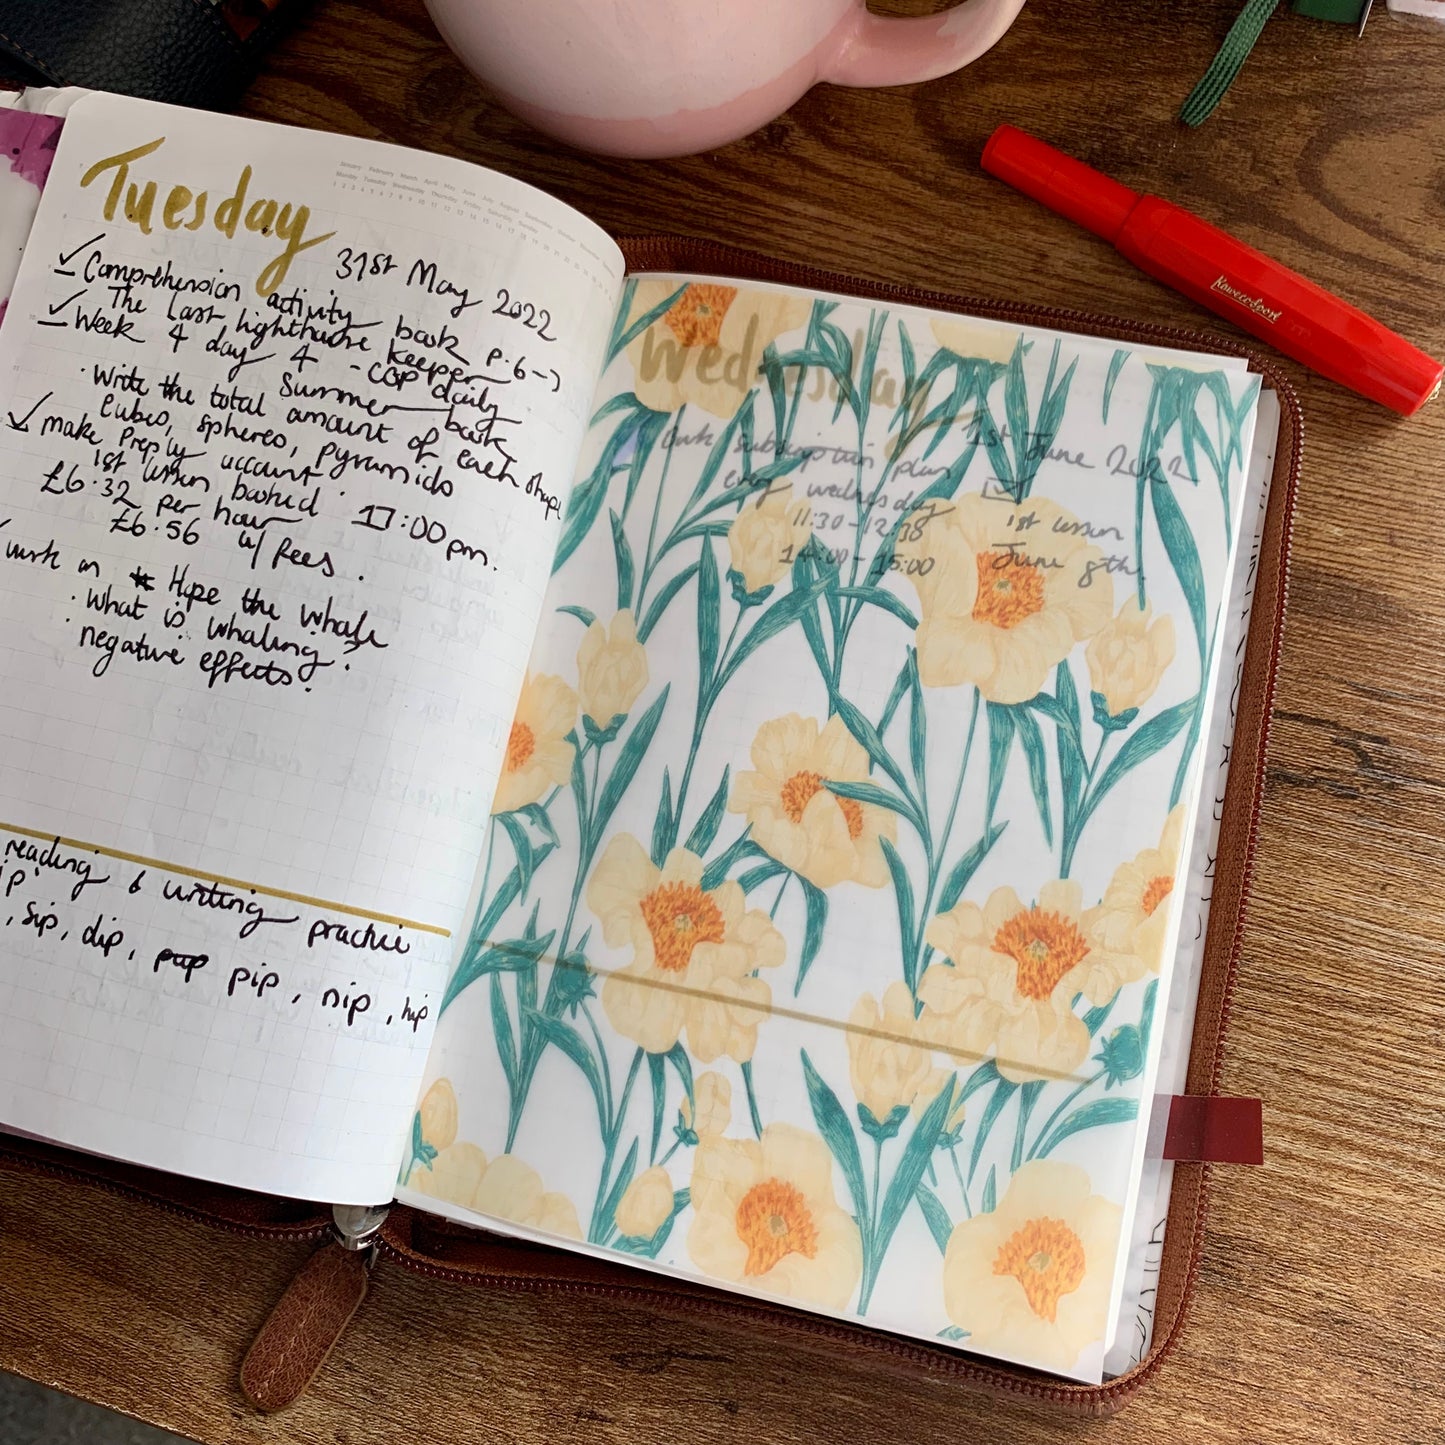 Tuesday
January February March April May June July August September October November December
Monday Tuesday Wednesday Thursday Friday Saturday Sunday
31st May 2022
Comprehension activity book p.6-7
The last lighthouse keeper
Week 4 day 4 - CGP daily
Summer book
· Write the total amount of each shape
cubes, spheres, pyramids
make Preply account
1st lesson booked · 17:00 pm.
£6.32 per hour
£6.56 w/ fees.
work on Hope the whale
· What is whaling?
· negative effects.
reading & writing practice
ip'
, sip, dip, pap pip, nip, hip
Wednesday
1st June 2022
subscription plan
every wednesday
11:30-12:30
14:00-15:00
1st lesson
June 8th.
Kaweco Sport